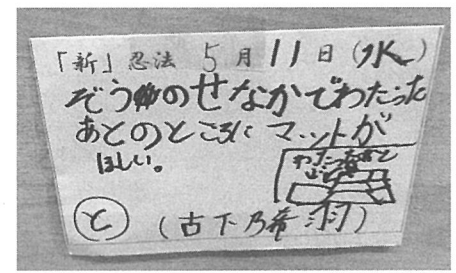 「新」忍法 5月11日(水)
ぞうのせなかでわたった
あとのところに マットが
ほしい。
わたったあと
と (古下乃希羽)